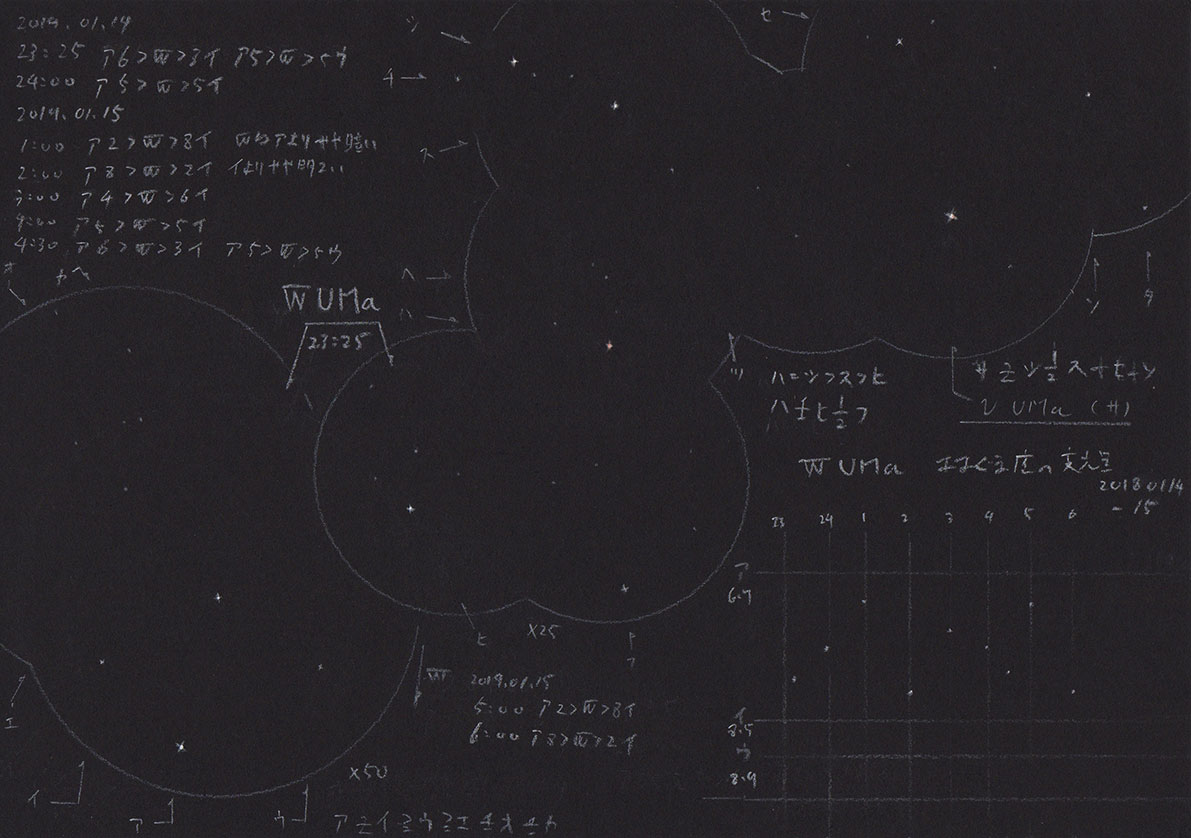 2019.01.14
23:25 ア6>W>3イ ア5>W>5ウ
24:00 ア5>W>5イ
2019.01.15
1:00 ア2>W>8イ Wはアよりやや暗い
2:00 ア8>W>2イ イよりやや明るい
3:00 ア4>W>6イ
4:00 ア5>W>5イ
4:30 ア6>W>3イ ア5>W>5ウ
ツ
セ
チ
ス
ヘ
ハ
オ
カ
W UMa
23:25
ソ
タ
ツ
ハ=ツ>ス>ヒ
VUMa (サ)
W UMa おおぐま座の変光星
2018 01 14
-15
23 24 1 2 3 4 5 6
ア
イ
8.5
ウ
8.9
ヒ
x25
フ
W 2019.01.15
5:00 ア2>W>8イ
6:00 ア8>W>2イ
エ
イ
ア
ウ
x50